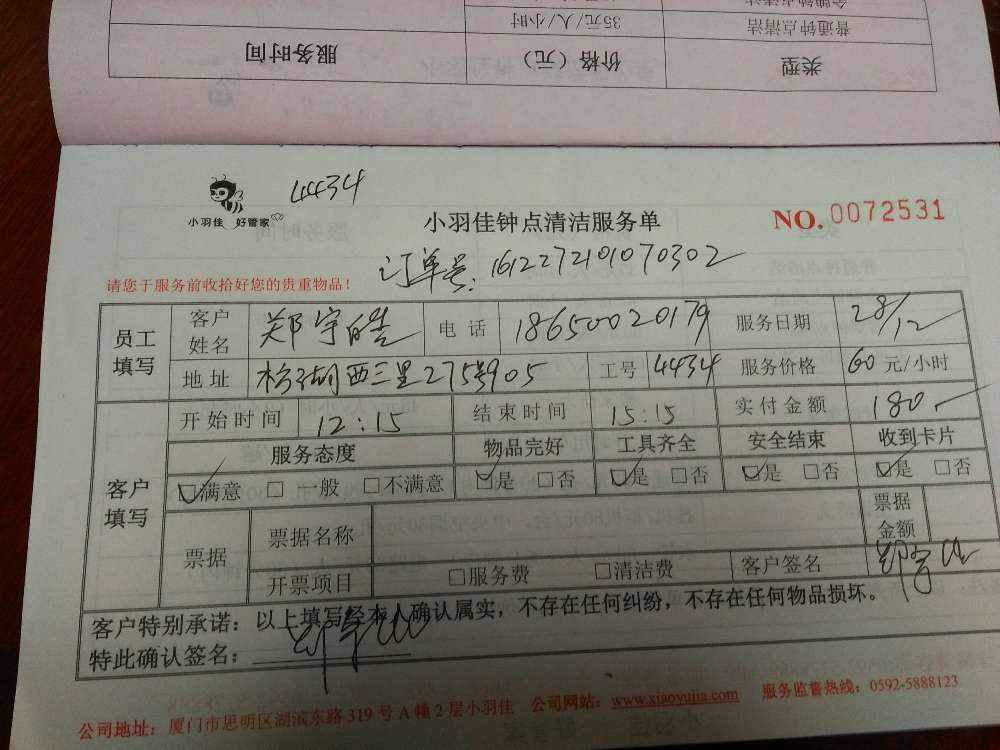 金牌钟点清洁
普通钟点清洁 35元/人/小时
类型 价格（元） 服务时间
小羽佳 好管家
4434
小羽佳钟点清洁服务单
NO. 0072531
订单号: 161227210107030​2
请您于服务前收拾好您的贵重物品！
员工填写 客户姓名 郑宇皓 电话 18650020179 服务日期 28/12
地址 松湖西三里275号905 工号 4434 服务价格 60 元/小时
客户填写 开始时间 12:15 结束时间 15:15 实付金额 180.-
服务态度 物品完好 工具齐全 安全结束 收到卡片
☑满意 □ 一般 □不满意 ☑是 □否 ☑是 □否 ☑是 □否 ☑是 □否
票据 票据名称 票据金额
开票项目 □服务费 □清洁费 客户签名
客户特别承诺：以上填写经本人确认属实，不存在任何纠纷，不存在任何物品损坏。
特此确认签名：
公司地址：厦门市思明区湖滨东路 319 号 A 幢 2 层小羽佳 公司网站：www.xiaoyujia.com 服务监督热线：0592-5888123